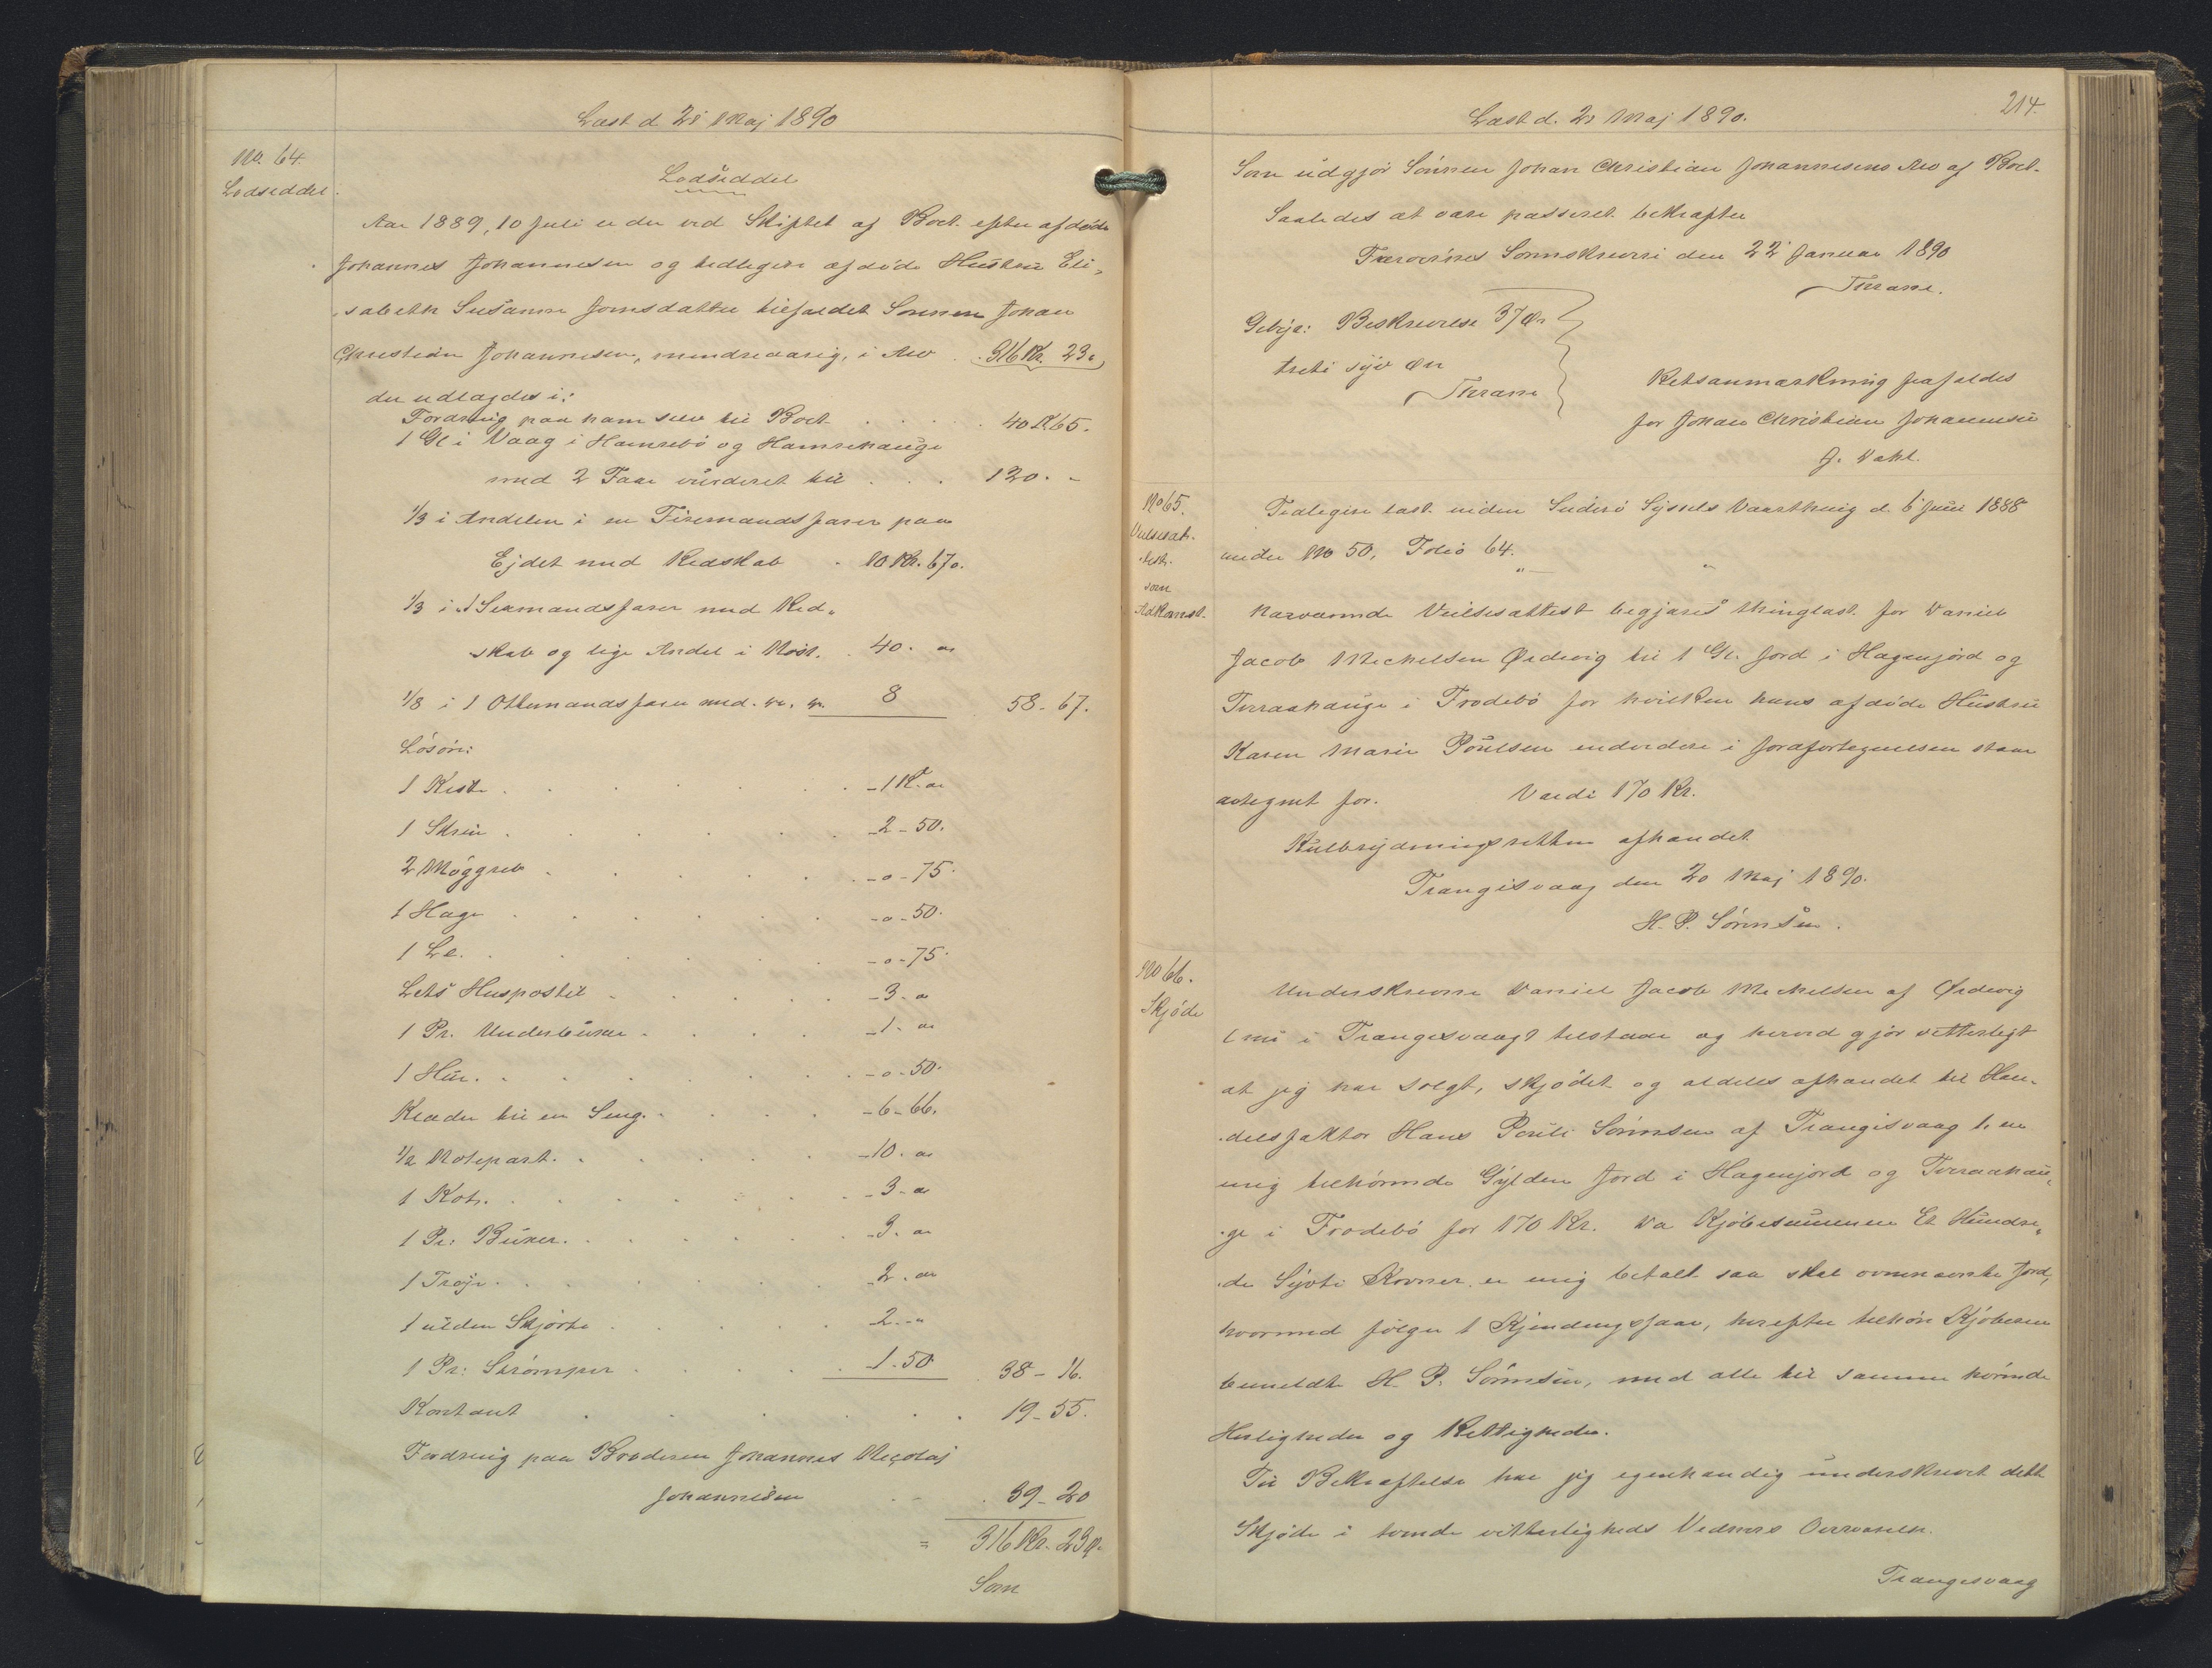 Læst d 21 Maj 1890
No. 64.
Lodseddel.
Lodseddel
Aar 1889, 10 Juli er der ved Skiftet af Boet efter afdøde
Johannes Johannesen og tidligere afdøde Hustru Eli-
sabeth Susanne Joensdatter tilfaldet Sønnen Johan
Christian Johannesen, mindreaarig, i Arv . 316 Kr. 23 ø
der udlagdes i:
Fordring paa ham selv til Boet . . . . 40 K 65.
1 Gl i Vaag i Hamrebø og Hamrehauge
med 2 Faar vurderet til . . . 120. -
1/3 i Andelen i en Firemandsfarer paa
Ejdet med Redskab . 10 Kr. 67 ø.
1/3 i 1 Sexmandsfarer med Red-
skab og lige Andel i Nøst. . 40. "
1/8 i 1 Ottemandsfarer med. do. do. 8 58 - 67.
Løsøre:
1 Kiste . . . . . . . - 1 K. "
1 Skrin . . . . . . - 2 - 50.
2 Møggreb . . . . . . - 0 - 75.
1 Hage . . . . . . - 0 - 50.
1 Le. . . . . . . - 0 - 75.
Lets Huspostil . . . . . - 3. "
1 Pr. Underbuxer . . . . - 1. "
1 Hue. . . . . . . - 0 - 50.
Klæder til en Seng. . . . . - 6 - 66.
1/2 Notepart. . . . . . - 10. "
1 Kot. . . . . . . - 3. "
1 Pr: Buxer. . . . . . - 3. "
1 Trøje. . . . . . . - 2. "
1 ulden Skjorte . . . . . - 2. "
1 Pr: Strømper . . . . . 1. 50 38 - 16.
Kontant . . . . . . 19 - 55.
Fordring paa Broderen Johannes Nicolaj
Johannesen . . . 39 - 20
= 316 Kr. 23 ø.
Som
Læst d. 21 Maj 1890.
214.
Som udgjør Sønnen Johan Christian Johannesens Arv af Boet.
Saaledes at være passeret bekræfter
Færøernes Sorenskriveri den 22 Januar 1890
Thrane.
Gebyr: Beskrivelse 37 Ør
treti syv Ør
Thrane
Retsanmærkning frafaldes
for Johan Christian Johannesen
J. Dahl.
No 65.
Vielsesat-
test.
som
Adkomst.
Tidligere læst inden Suderø Syssels Vaarthing d. 6 Juni 1888
under No 50, Folio 64.
Nærværende Vielsesattest begjæres thinglæst for Daniel
Jacob Michelsen Ørdevig til 1 Gl. Jord i Hagenjord og
Tveraahauge i Frodebø for hvilken hans afdøde Hustru
Karen Marie Poulsen endvidere i Jordfortegnelsen staar
antegnet for. Værdi 170 Kr.
Kulbrydningsretten afhændet
Trangisvaag den 20 Maj 1890.
H. P. Sørensen.
No 66.
Skjøde
Underskrevne Daniel Jacob Michelsen af Ørdevig
(nu i Trangisvaag) tilstaar og herved gjør vitterligt
at jeg har solgt, skjødet og aldeles afhændet til Han-
delsfaktor Hans Pouli Sørensen af Trangisvaag 1, en
mig tilhørende Gylden Jord i Hagenjord og Tveraahau-
ge i Frodebø for 170 Kr. Da Kjøbesummen Et Hundre-
de Syvti Kroner er mig betalt saa skal ovennævnte Jord,
hvormed følger 1 Kjendingsfaar, herefter tilhøre Kjøberen
bemeldte H. P. Sørensen, med alle til samme hørende
Herligheder og Rettigheder.
Til Bekræftelse har jeg egenhændig underskrevet dette
Skjøde i tvende vitterligheds Vidners Overværelse.
Trangisvaag